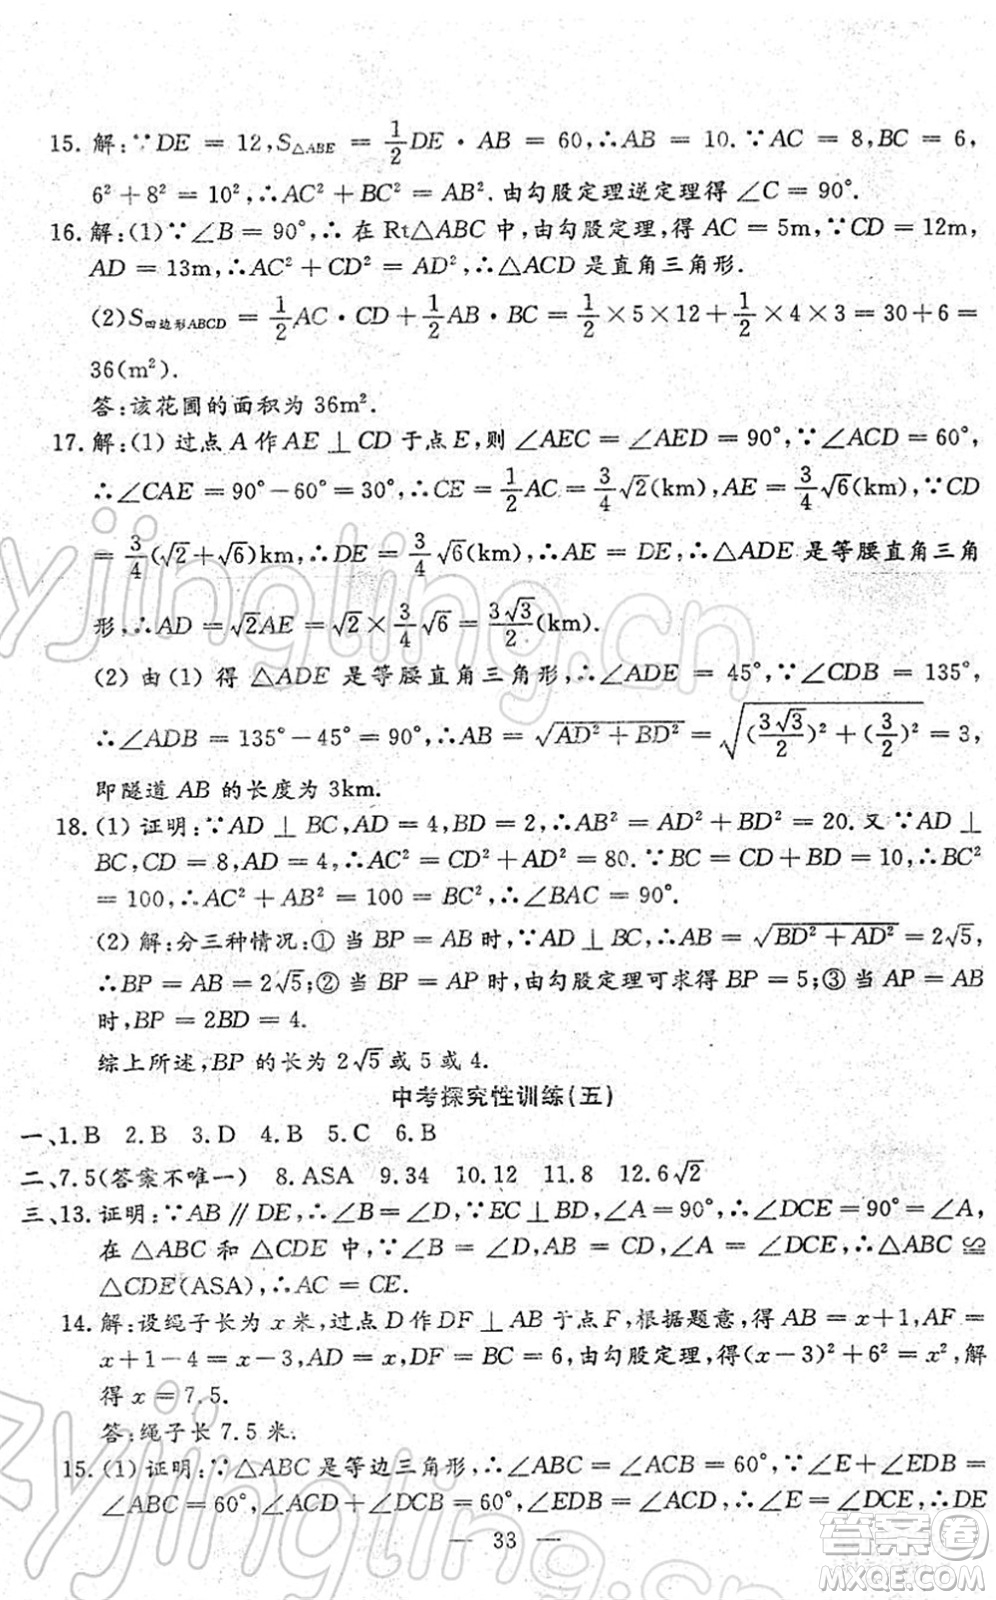 15. 解:∵DE = 12,S△ABE = 1/2 DE · AB = 60,∴AB = 10.∵AC = 8,BC = 6,
6² + 8² = 10²,∴AC² + BC² = AB². 由勾股定理逆定理得∠C = 90°.
16. 解:(1)∵∠B = 90°,∴ 在 Rt△ABC 中,由勾股定理,得 AC = 5m,∵CD = 12m,
AD = 13m,∴AC² + CD² = AD²,∴△ACD 是直角三角形.
(2)S四边形ABCD = 1/2 AC · CD + 1/2 AB · BC = 1/2 × 5 × 12 + 1/2 × 4 × 3 = 30 + 6 =
36(m²).
答:该花圃的面积为 36m².
17. 解:(1) 过点 A 作 AE ⊥ CD 于点 E,则 ∠AEC = ∠AED = 90°,∵∠ACD = 60°,
∴∠CAE = 90° − 60° = 30°,∴CE = 1/2 AC = 3/4 √2(km),AE = 3/4 √6(km),∵CD
= 3/4(√2 + √6)km,∴DE = 3/4 √6(km),∴AE = DE,∴△ADE 是等腰直角三角
形,∴AD = √2AE = √2 × 3/4 √6 = 3√3/2(km).
(2) 由 (1) 得 △ADE 是等腰直角三角形,∴∠ADE = 45°,∵∠CDB = 135°,
∴∠ADB = 135° − 45° = 90°,∴AB = √(AD² + BD²) = √((3√3/2)² + (3/2)²) = 3,
即隧道 AB 的长度为 3km.
18. (1) 证明:∵AD ⊥ BC,AD = 4,BD = 2,∴AB² = AD² + BD² = 20. 又∵AD ⊥
BC,CD = 8,AD = 4,∴AC² = CD² + AD² = 80.∵BC = CD + BD = 10,∴BC²
= 100,∴AC² + AB² = 100 = BC²,∴∠BAC = 90°.
(2) 解:分三种情况:① 当 BP = AB 时,∵AD ⊥ BC,∴AB = √(BD² + AD²) = 2√5,
∴BP = AB = 2√5;② 当 BP = AP 时,由勾股定理可求得 BP = 5;③ 当 AP = AB
时,BP = 2BD = 4.
综上所述,BP 的长为 2√5 或 5 或 4.
中考探究性训练(五)
一、1. B 2. B 3. D 4. B 5. C 6. B
二、7. 5(答案不唯一) 8. ASA 9. 34 10. 12 11. 8 12. 6√2
三、13. 证明:∵AB ∥ DE,∴∠B = ∠D,∵EC ⊥ BD,∠A = 90°,∴∠DCE = 90° = ∠A,
在 △ABC 和 △CDE 中,∵∠B = ∠D,AB = CD,∠A = ∠DCE,∴△ABC ≌
△CDE(ASA),∴AC = CE.
14. 解:设绳子长为 x 米,过点 D 作 DF ⊥ AB 于点 F,根据题意,得 AB = x + 1,AF =
x + 1 − 4 = x − 3,AD = x,DF = BC = 6,由勾股定理,得(x − 3)² + 6² = x²,解
得 x = 7.5.
答:绳子长 7.5 米.
15. (1) 证明:∵△ABC 是等边三角形,∴∠ABC = ∠ACB = 60°,∵∠E + ∠EDB =
∠ABC = 60°,∠ACD + ∠DCB = 60°,∠EDB = ∠ACD,∴∠E = ∠DCE,∴DE
— 33 —
zyjingling.cn
zyjingling.cn
答案卷
MXQE.COM